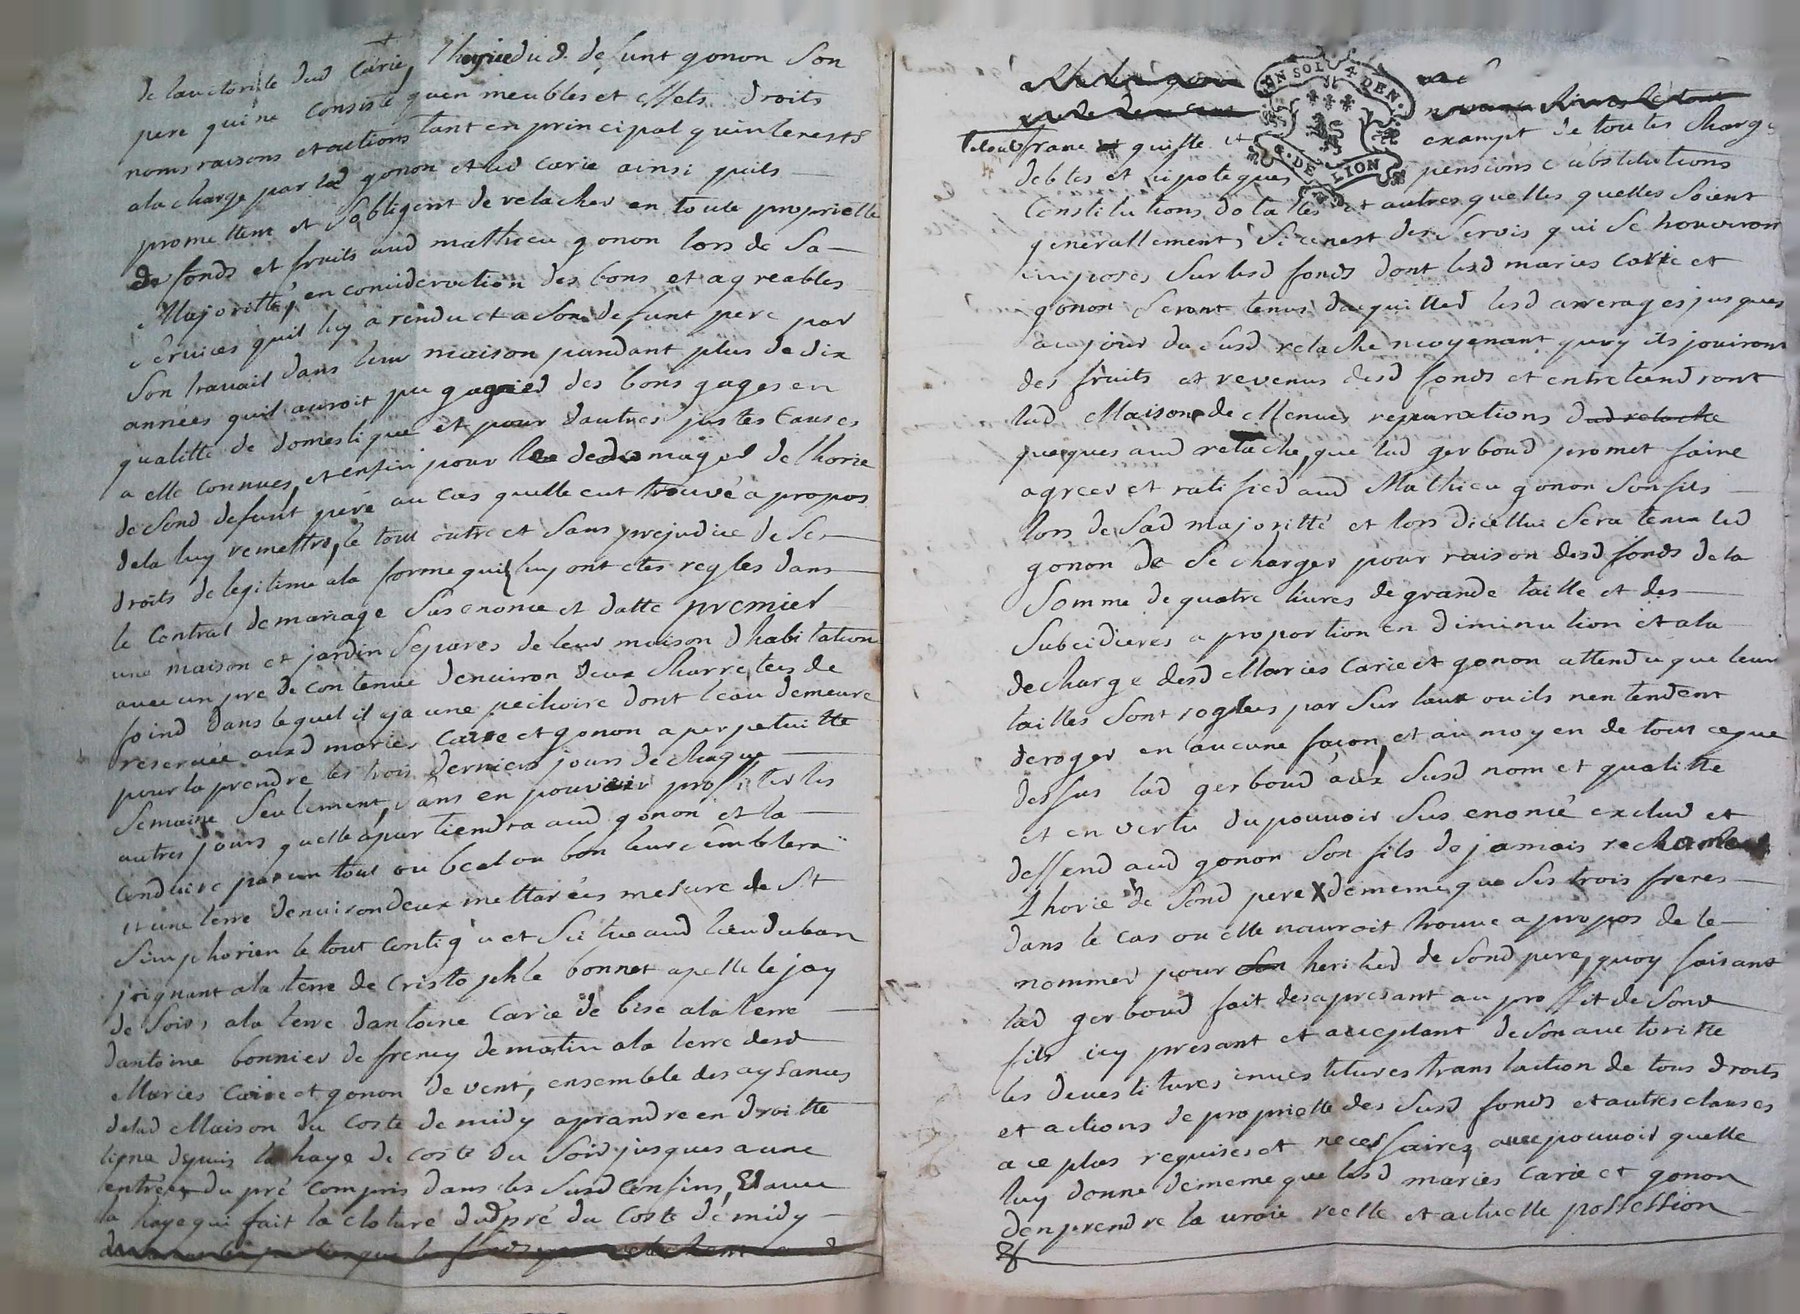 de lauctorité dud Carie, lhoyrie dud. defunt gonon Son
pere qui ne consiste quen meubles et effets droits
noms raisons et actions tant en principal quinterests
ala charge par lad gonon et led carie ainsi quils
promettent et Sobligent de relacher en toute proprietté
de fonds et fruits aud mathieu gonon lors de Sa
Majoritté, en considerution des bons et agreables
Services quil luy a rendu et a Son defunt pere par
Son travail dans leur maison pandant plus de dix
années quil auroit pu gagned des bons gages en
qualitté de domestique et pour dautres justes Causes
a elle connues, et enfin pour dedomaged de lhorie
de Sond defunt pere au cas quelle eut trouvé a propos
dela luy remettre, le tout outre et Sans prejudice de Ses
droits de legitime ala forme quil luy ont etes regles dans
le Contrat de mariage Sus enoncé et datté premier
une maison et jardin Separes de leur maison dhabitation
avec un pre de contenue denviron deux Charretees de
foind dans lequel il y a une pechoire dont leau demeure
reservée ausd maries Carie et gonon a perpetuitté
pour la prendre les trois derniers jours de chaque
Semaine Seulement, Sans en pouvoir proffitter les
autres jours quelle apartiendra aud gonon et la
Conduire par un tout ou beal ou bon leur Semblera
et une terre denviron deux mettarées mesure de St
Simphorien le tout contigu et Situe aud lieu duban
joignant ala terre de Cristophle bonnet apellé le jay
de Soir, ala terre dantoine Carie de bise ala terre
dantoine bonnier de freney de matin ala terre desd
Maries Carie et gonon de vent, ensemble des aysances
delad Maison du Costé de midy aprandre en droitte
ligne depuis la haye de costé du Soir jusques a une
entrée du pré compris dans les Susd confins, Et avec
la haye qui fait la cloture dud pré du Costé de midy
UN SOL 4 DEN.
G. DE LION
Tetout franc quitte et exampt de toutes Charges
debtes et ipoteques pensions Substitutions
Constitutions dotalles et autres quelles quelles Soient
generallement, Si cenest des Servis qui Se trouveront
imposés Sur lesd fonds dont lesd maries carie et
gonon Seront tenus daquitted lesd arrerages jusques
au jour du Susd relache moyenant quoy ils jouiront
des fruits et revenus desd fonds et entretiendront
lad Maison de Menues reparations dud relache
jusques aud relache, que lad gerboud promet faire
agreer et ratified aud Mathieu gonon Son fils
lors de Sad majoritté et lors dicelle Sera tenu led
gonon de Se charger pour raison desd fonds dela
Somme de quatre livres de grande taille et des
Subcidieres a proportion en diminution et ala
decharge desd Maries Carie et gonon attendu que leur
tailles Sont reglees par Sur taux ou ils nentendent
deroger en aucune façon, et au moyen de tout ceque
dessus lad gerboud aux Susd nom et qualitte
et en vertu du pouvoir Sus enoncé exclud et
deffend aud gonon Son fils de jamais rechercher
Lhorie de Sond pere X de meme que Ses trois freres
dans le cas ou elle nauroit trouve a propos de le
nommer pour heritied de Sond pere, quoy faisant
lad gerboud fait desapresant au proffit de Sond
fils icy present et acceptant de Son auctoritte
les devestitures investitures translaction de tous droits
et actions de proprietté des Susd fonds et autres clauses
a ce plus requises et necessaires avec pouvoir quelle
luy donne dememe que lesd maries Carie et gonon
den prendre la vraie reelle et actuelle possession